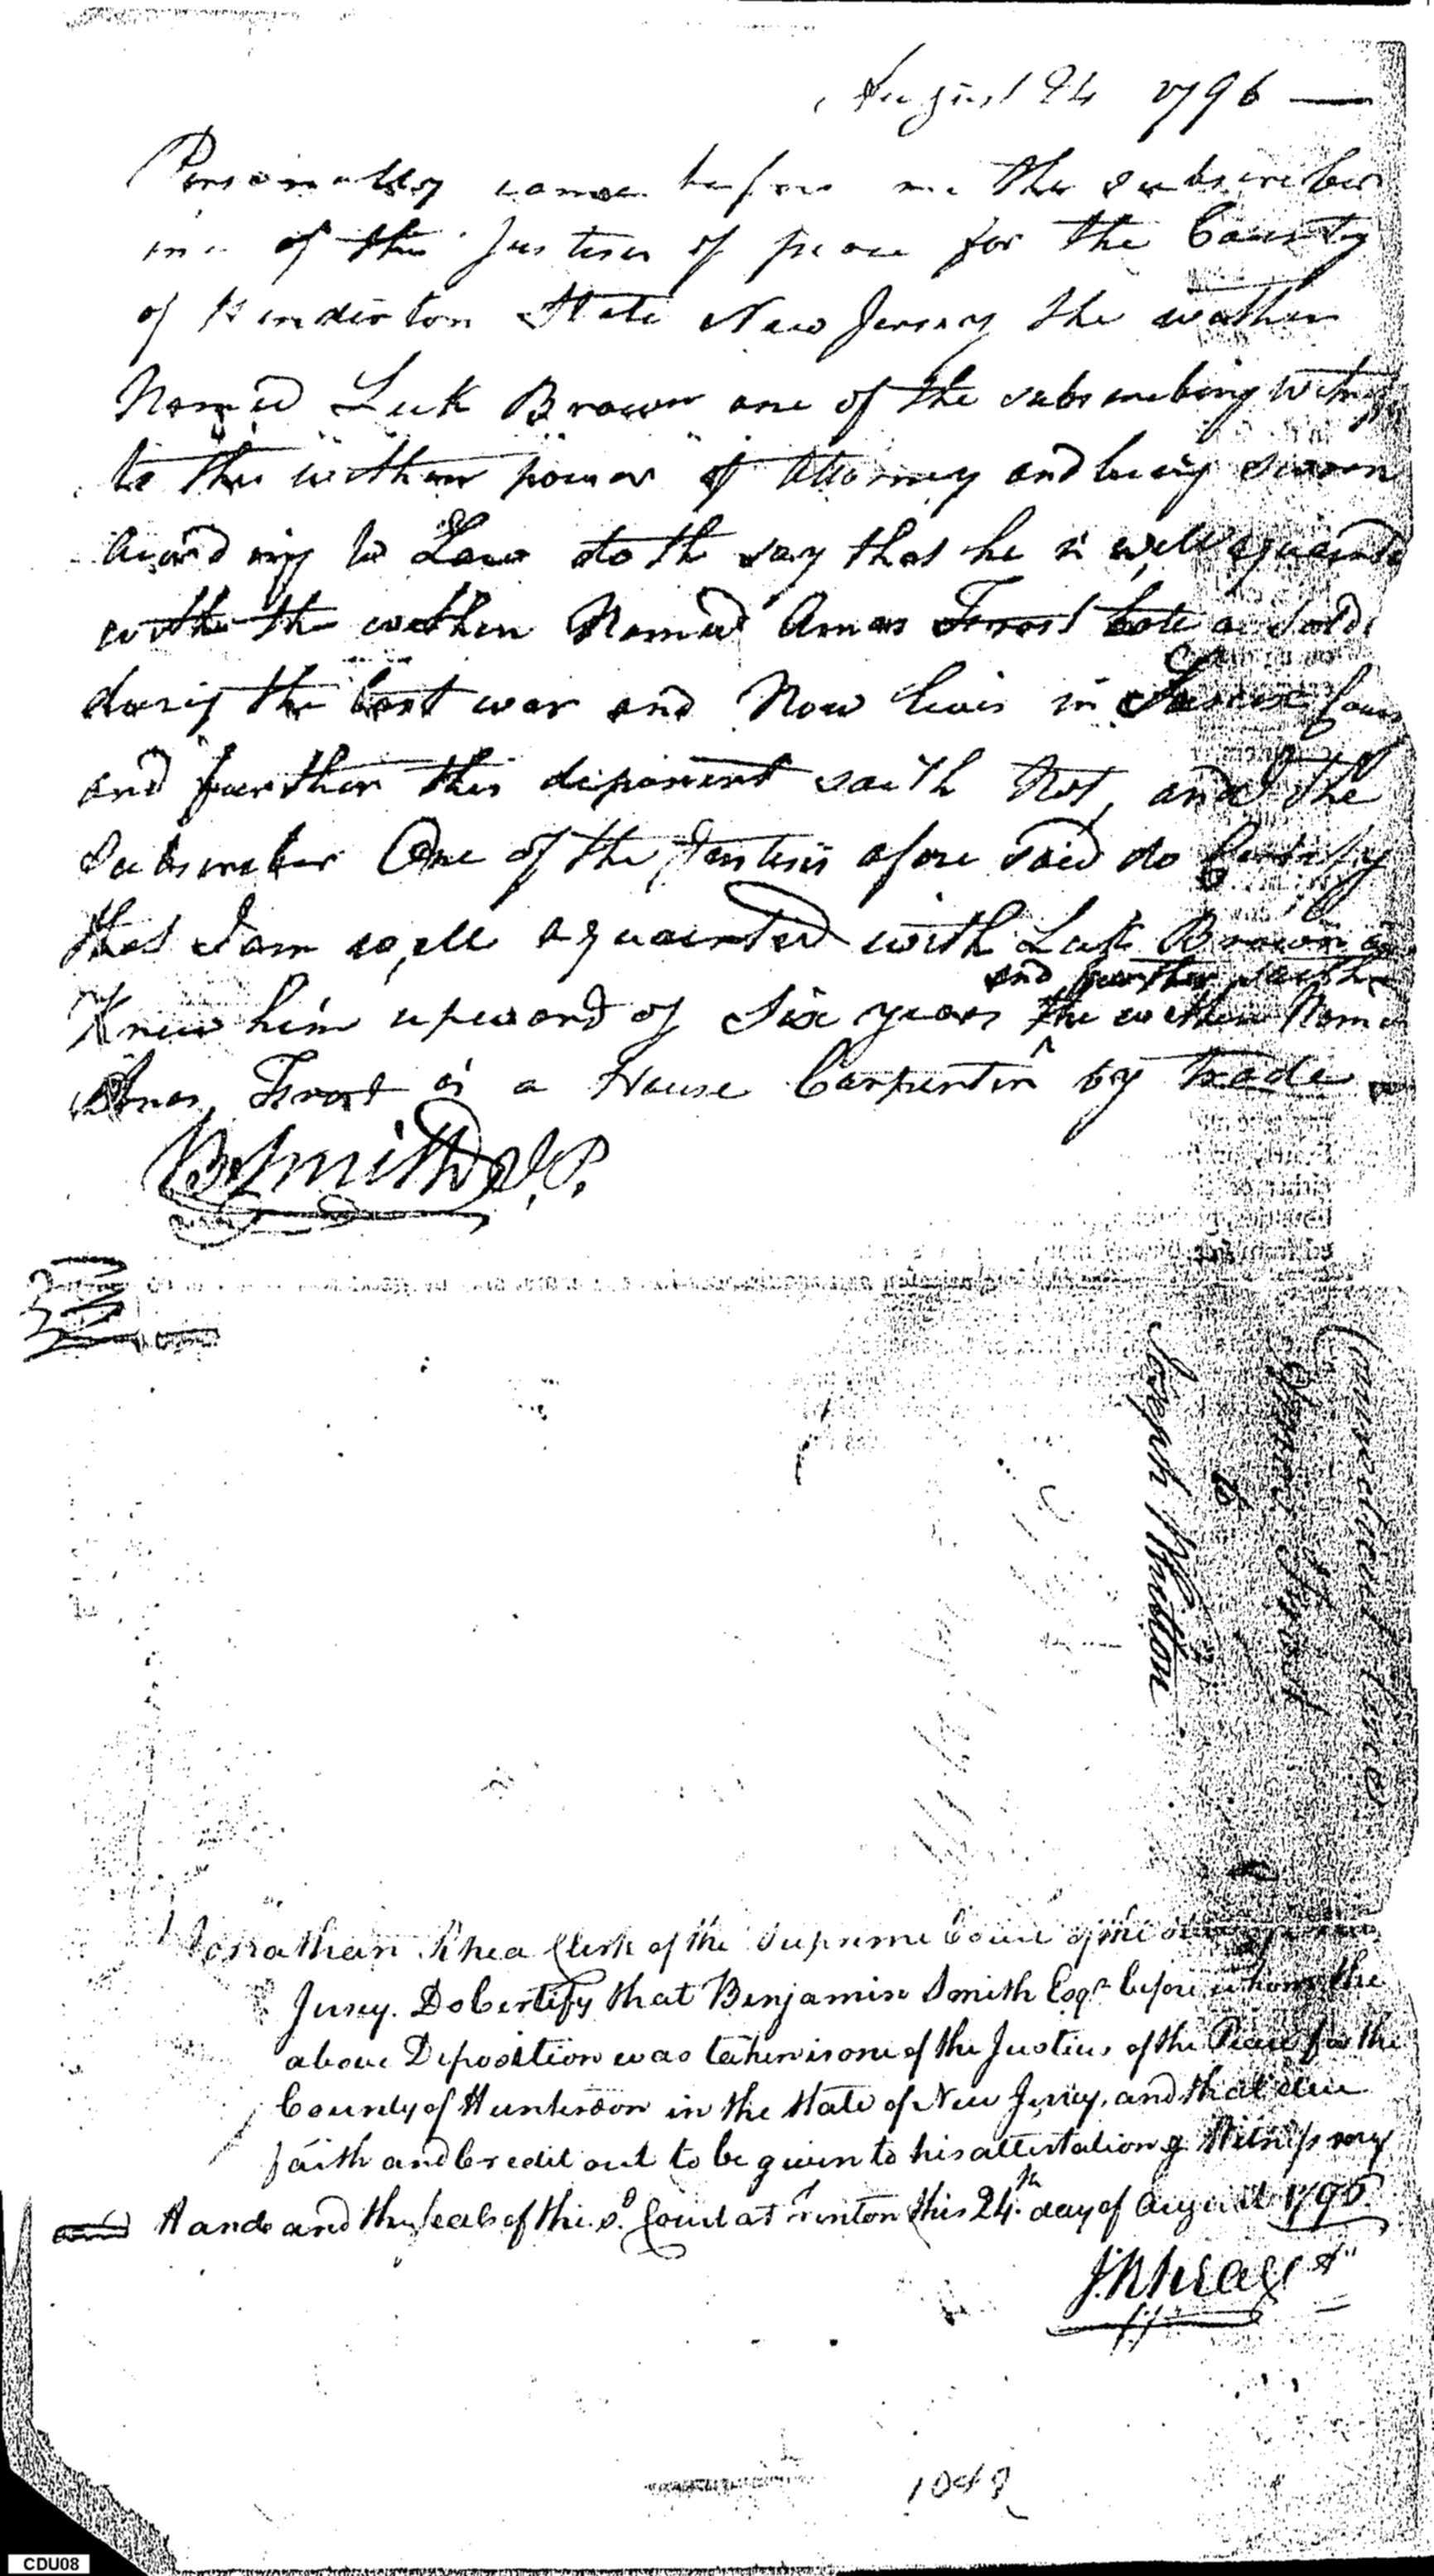 August 24 1796 —
Personally came before me the subscriber
one of the Justises of peace for the County
of Hunderton State New Jersey the within
Named Luk Brown one of the subscribing witness
to this within power of Attorney and being sworn
according to Law doth say that he is well aquainted
with the within Named Amos Frost late a Sold
during the last war and Now lives in Sussex Coun
and further this deponent saith Not, and I the
Subscriber One of the Justises afore said do Certify
that I am well aquainted with Luk Brown
and further saith
Knew him upward of Six years the within Named
Amos Frost is a House Carpenter by trade
B Smith J.P.
Connecticut Line
Amos Frost
to
Joseph Whitton
I Jonathan Rhea Clerk of the Supreme Court of the
Jersey. Do Certify that Benjamin Smith Esqr. before whom the
above Deposition was taken is one of the Justices of the Peace for the
County of Hunterdon in the State of New Jersey, and that due
faith and Credit out to be given to his attestation Witness my
Hand and the seal of the sd. Court at Trenton this 24th day of August 1796
J. Rhea
1048
CDU08